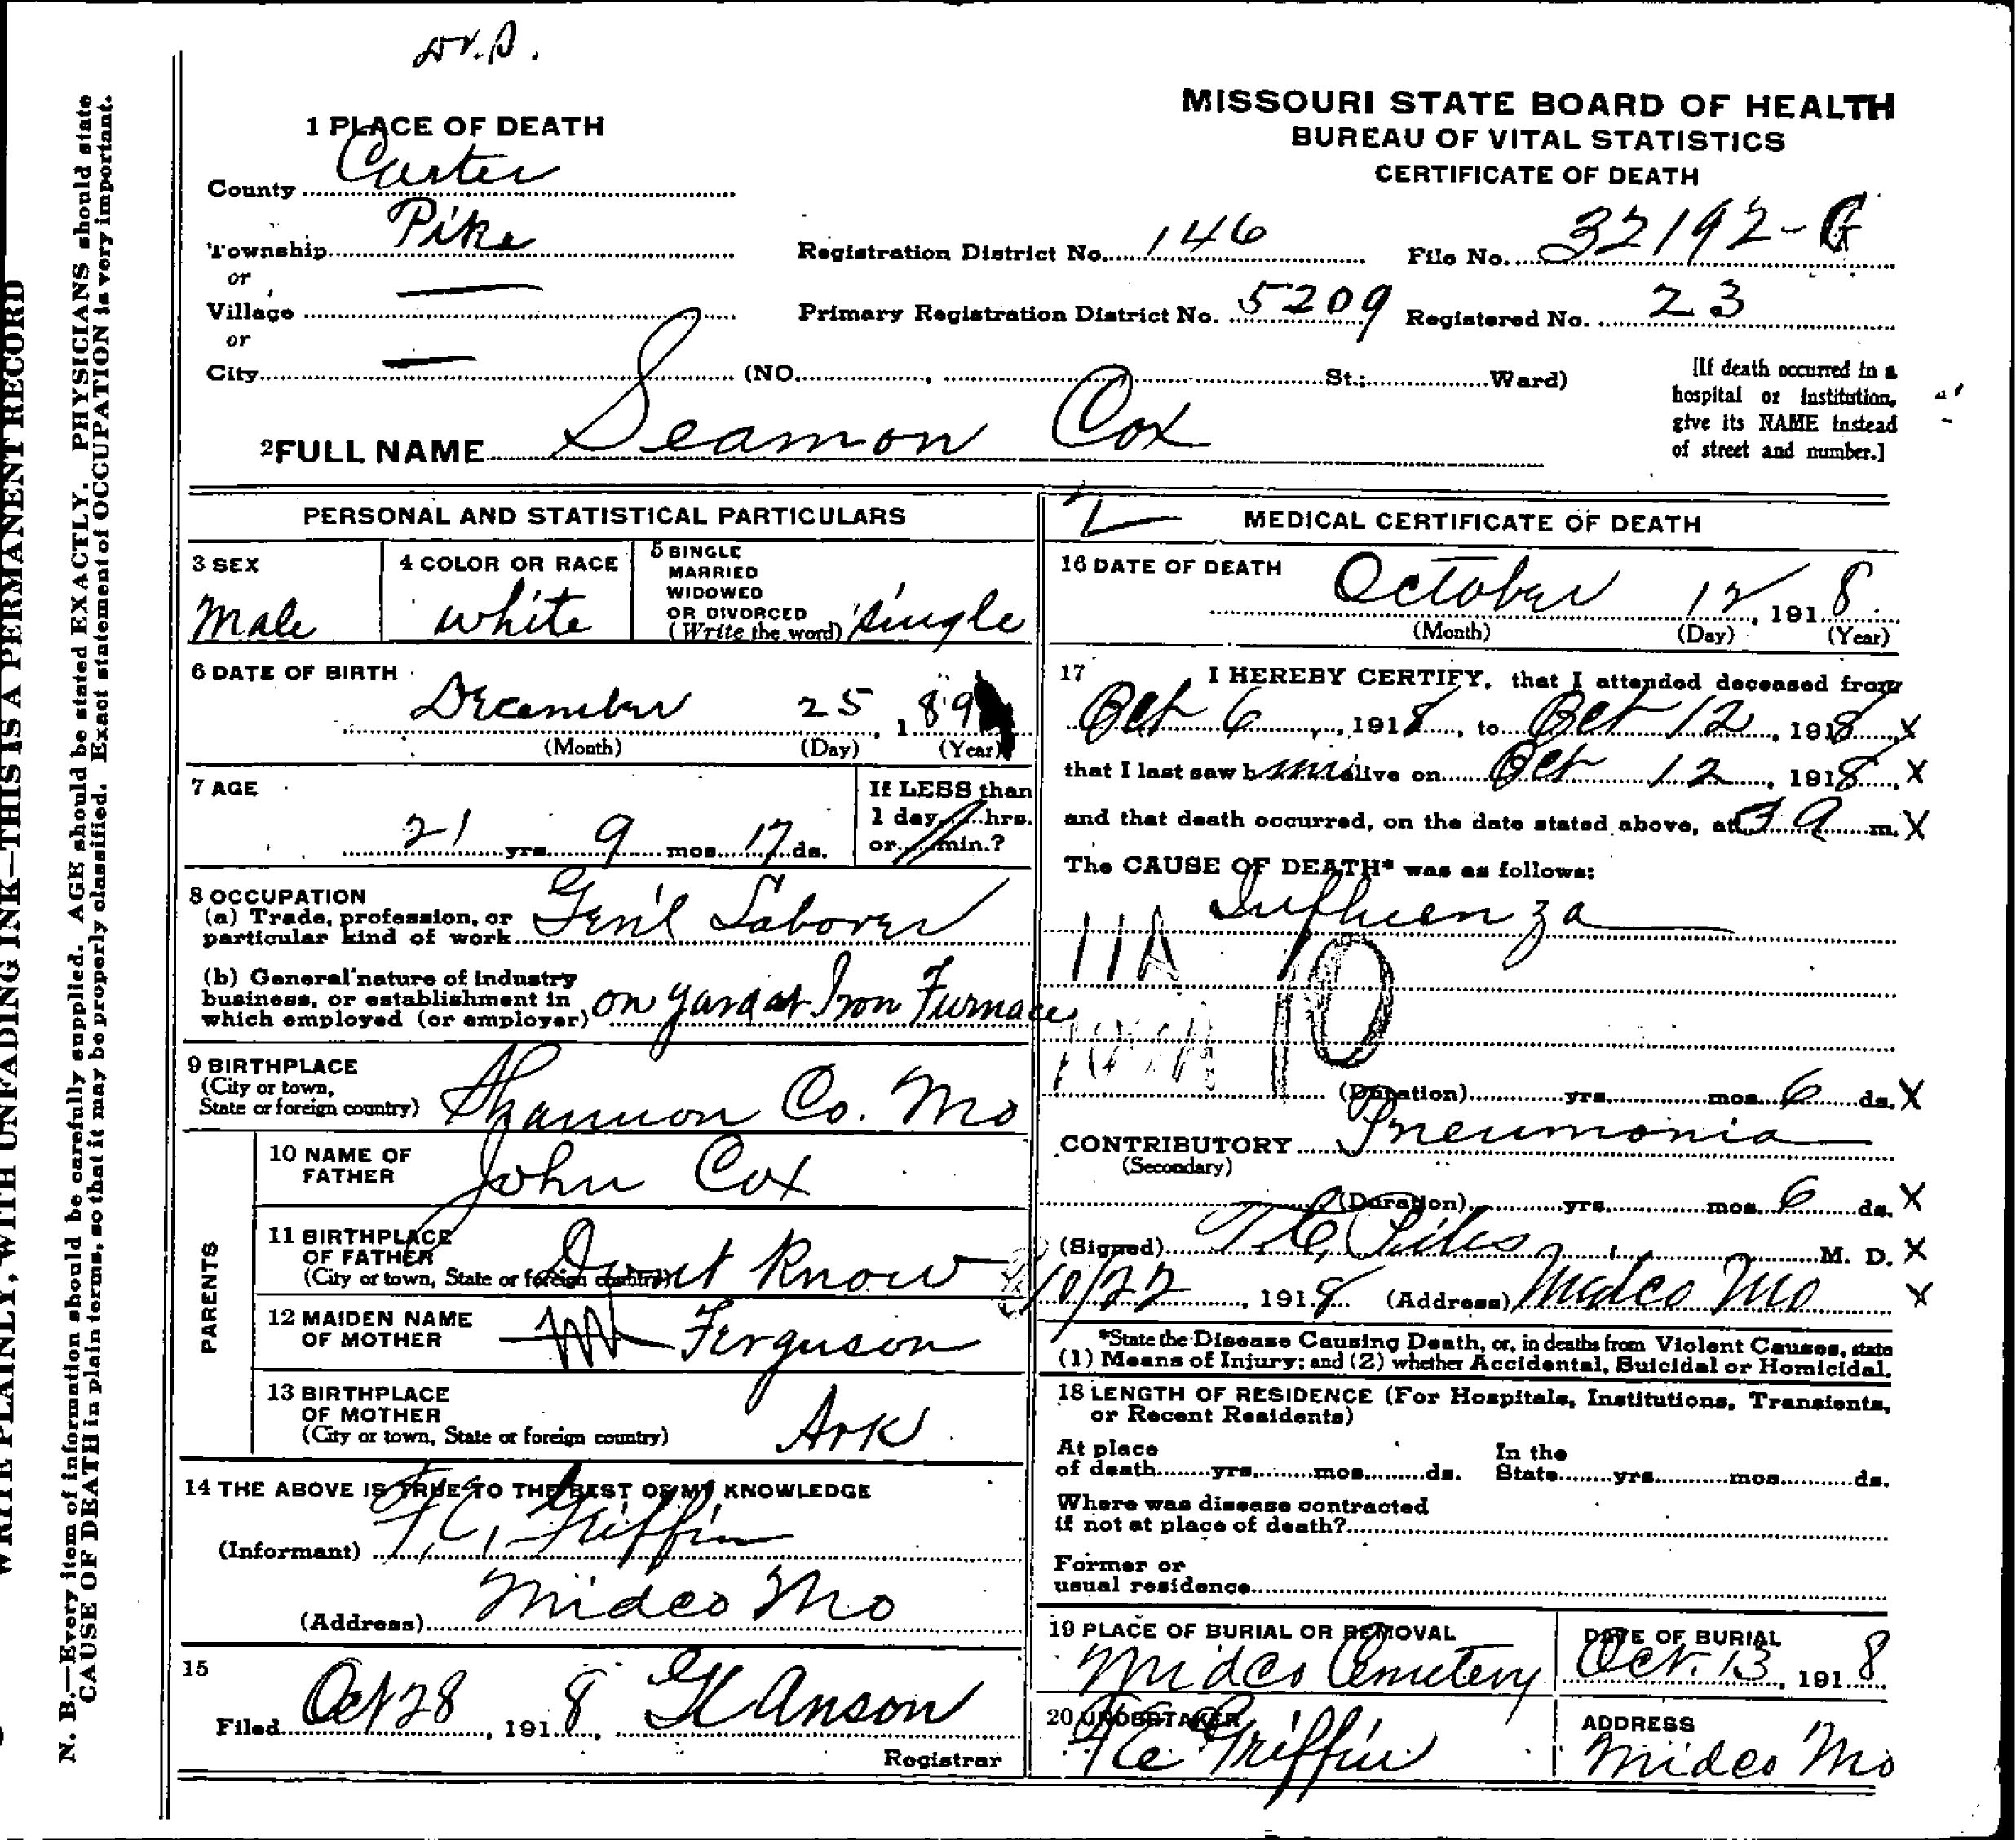 MISSOURI STATE BOARD OF HEALTH
BUREAU OF VITAL STATISTICS
CERTIFICATE OF DEATH
1 PLACE OF DEATH
County Carter
Township Pike
or
Village —
or
City — (NO. , St.; Ward)
Registration District No. 146 File No. 32192-G
Primary Registration District No. 5209 Registered No. 23
[If death occurred in a
hospital or institution,
give its NAME instead
of street and number.]
2 FULL NAME Seamon Cox
PERSONAL AND STATISTICAL PARTICULARS
3 SEX
Male
4 COLOR OR RACE
white
5 SINGLE
MARRIED
WIDOWED
OR DIVORCED
(Write the word) single
6 DATE OF BIRTH
December 25, 189
(Month) (Day) (Year)
7 AGE
21 yrs. 9 mos. 17 ds.
If LESS than
1 day, hrs.
or min.?
8 OCCUPATION
(a) Trade, profession, or
particular kind of work Gen'l Laborer
(b) General nature of industry
business, or establishment in
which employed (or employer) on yard at Iron Furnace
9 BIRTHPLACE
(City or town,
State or foreign country) Shannon Co. Mo
PARENTS
10 NAME OF
FATHER John Cox
11 BIRTHPLACE
OF FATHER
(City or town, State or foreign country) Dont Know
12 MAIDEN NAME
OF MOTHER Ferguson
13 BIRTHPLACE
OF MOTHER
(City or town, State or foreign country) Ark
14 THE ABOVE IS TRUE TO THE BEST OF MY KNOWLEDGE
(Informant) F.C. Griffin
(Address) Midco Mo
15
Filed Oct 28, 1918, Anson
Registrar
2
MEDICAL CERTIFICATE OF DEATH
16 DATE OF DEATH
October 12, 1918
(Month) (Day) (Year)
17 I HEREBY CERTIFY, that I attended deceased from
Oct 6, 1918, to Oct 12, 1918, X
that I last saw him alive on Oct 12, 1918, X
and that death occurred, on the date stated above, at 3 a m. X
The CAUSE OF DEATH* was as follows:
Influenza
11A 10
(Duration) yrs. mos. 6 ds. X
CONTRIBUTORY Pneumonia
(Secondary)
(Duration) yrs. mos. 6 ds. X
(Signed) M. D. X
10/22, 1918 (Address) Midco Mo X
*State the Disease Causing Death, or, in deaths from Violent Causes, state
(1) Means of Injury; and (2) whether Accidental, Suicidal or Homicidal.
18 LENGTH OF RESIDENCE (For Hospitals, Institutions, Transients,
or Recent Residents)
At place
of death yrs. mos. ds. In the
State yrs. mos. ds.
Where was disease contracted
if not at place of death?
Former or
usual residence
19 PLACE OF BURIAL OR REMOVAL
Midco Cemetery
DATE OF BURIAL
Oct. 13, 1918
20 UNDERTAKER
Griffin
ADDRESS
Midco Mo
WRITE PLAINLY, WITH UNFADING INK—THIS IS A PERMANENT RECORD
N. B.—Every item of information should be carefully supplied. AGE should be stated EXACTLY. PHYSICIANS should state
CAUSE OF DEATH in plain terms, so that it may be properly classified. Exact statement of OCCUPATION is very important.